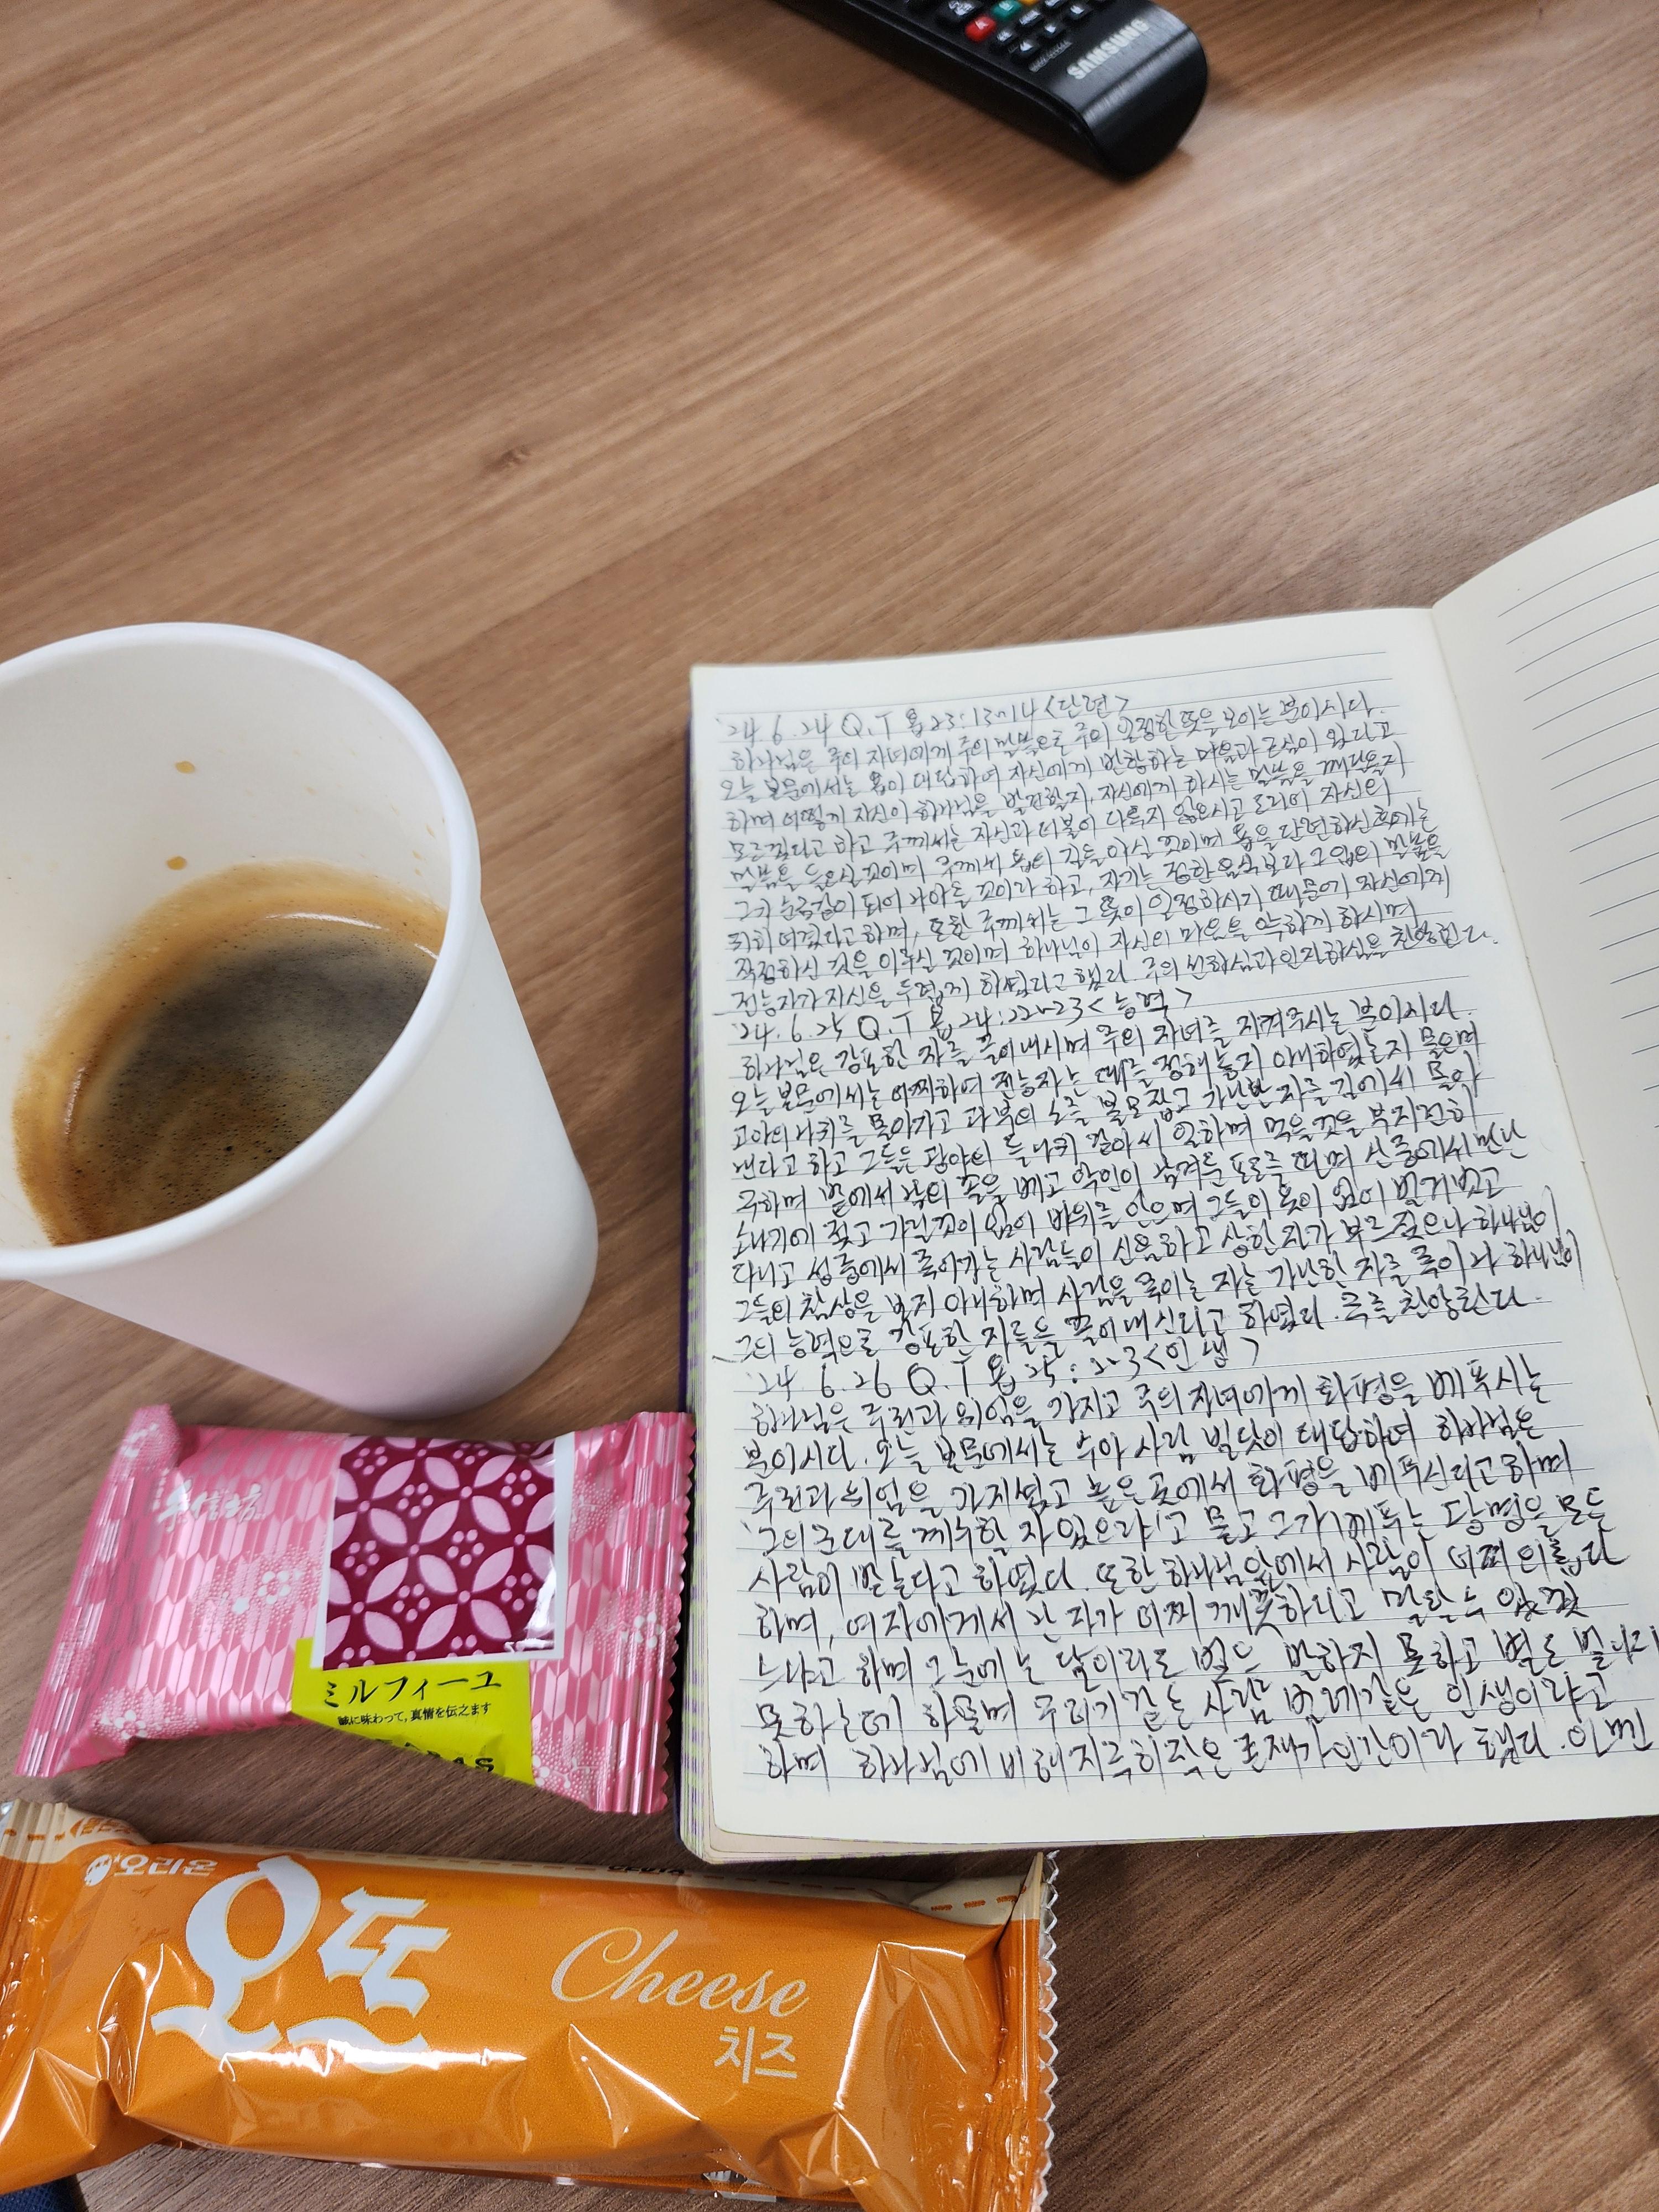 SAMSUNG
'24.6.24 Q.T 욥23:13~14<단련>
하나님은 주의 자녀에게 주의 말씀으로 주의 일정한 뜻을 보이는 분이시다.
오늘 본문에서는 욥이 대답하여 자신에게 반항하는 마음과 근심이 있다고
하며 어떻게 자신이 하나님을 발견할지, 자신에게 하시는 말씀을 깨달을지
모르겠다고 하고 주께서는 자신과 더불어 다투지 않으시고 도리어 자신의
말씀을 들으실 것이며 주께서 욥의 길을 아실 것이며 욥을 단련하신 후에는
그가 순금같이 되어 나아올 것이라 하고, 자기는 정한 음식보다 그 입의 말씀을
귀히 여겼다고 하며, 또한 주께서는 그 뜻이 일정하시기 때문에 자신에게
작정하신 것을 이루실 것이며 하나님이 자신의 마음을 약하게 하시며
전능자가 자신을 두렵게 하셨다고 했다. 주의 선하심과 인자하심을 찬양한다.
'24.6.25 Q.T 욥24:22~23<능력>
하나님은 강포한 자를 끌어내시며 주의 자녀를 지켜주시는 분이시다.
오늘 본문에서는 어찌하여 전능자는 때를 정해 놓지 아니하였는지 물으며
고아의 나귀를 몰아가고 과부의 소를 볼모 잡고 가난한 자를 길에서 몰아
낸다고 하고 그들은 광야의 들나귀 같아서 일하며 먹을 것을 부지런히
구하며 밭에서 남의 꼴을 베고 악인이 남겨둔 포도를 따며 산중에서 만난
소나기에 젖고 가릴 것이 없어 바위를 안으며 그들이 옷이 없어 벌거벗고
다니고 성중에서 죽어가는 사람들이 신음하고 상한 자가 부르짖으나 하나님이
그들의 참상을 보지 아니하며 사람을 죽이는 자는 가난한 자를 죽이나 하나님이
그의 능력으로 강포한 자들을 끌어내신다고 하였다. 주를 찬양한다.
'24.6.26 Q.T 욥25:2~3<인생>
하나님은 주권과 위엄을 가지고 주의 자녀에게 화평을 베푸시는
분이시다. 오늘 본문에서는 수아 사람 빌닷이 대답하여 하나님은
주권과 위엄을 가지셨고 높은 곳에서 화평을 베푸신다고 하며
'그의 군대를 계수할 자 있으랴'고 묻고 그가 비추는 광명을 모든
사람이 받는다고 하였다. 또한 하나님 앞에서 사람이 어찌 의롭다
하며, 여자에게서 난 자가 어찌 깨끗하다고 말할 수 있겠
느냐고 하며 그 눈에는 달이라도 빛을 발하지 못하고 별도 빛나지
못하는데 하물며 구더기 같은 사람, 벌레같은 인생이랴고
하며 하나님에 비해 지극히 작은 존재가 인간이라 했다. 인간
ミルフィーユ
誠に味わって、真情を伝えます
오리온
오뜨
Cheese
치즈